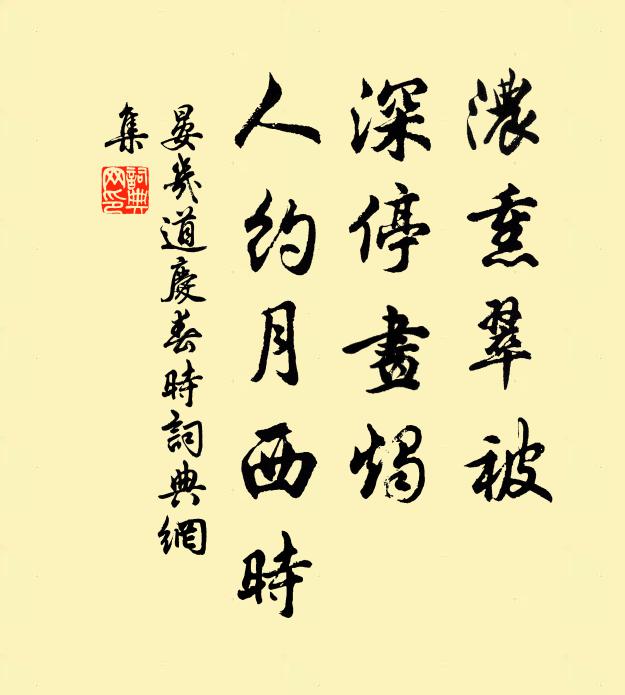 濃熏翠被
深停畫燭
人約月西時
晏幾道慶春時詞典網
集
詞典
网印